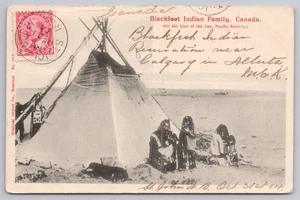 Canada
Blackfoot Indian Family, Canada.
(On the Line of the Can. Pacific Railway.)
Blackfoot Indian
Reservation near
Calgary in Alberta
St. John N.B. Oct 31st